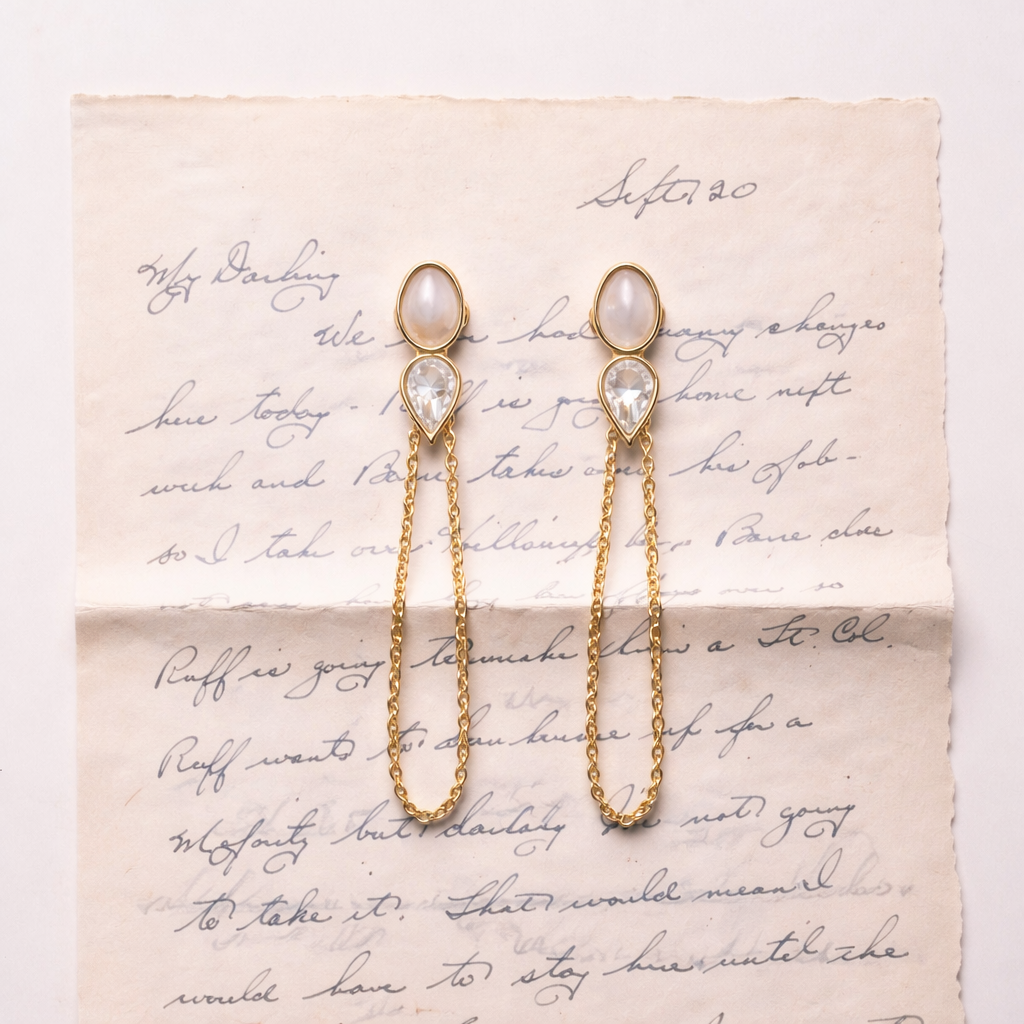 Sept 20
My Darling
We had many changes
here today - Ruff is going home next
week and Bane takes over his job -
so I take over Bane does
so
Ruff is going to make him a Lt. Col.
Ruff wants to me up for a
Majority but darling I'm not going
to take it. That would mean I
would have to stay here until the